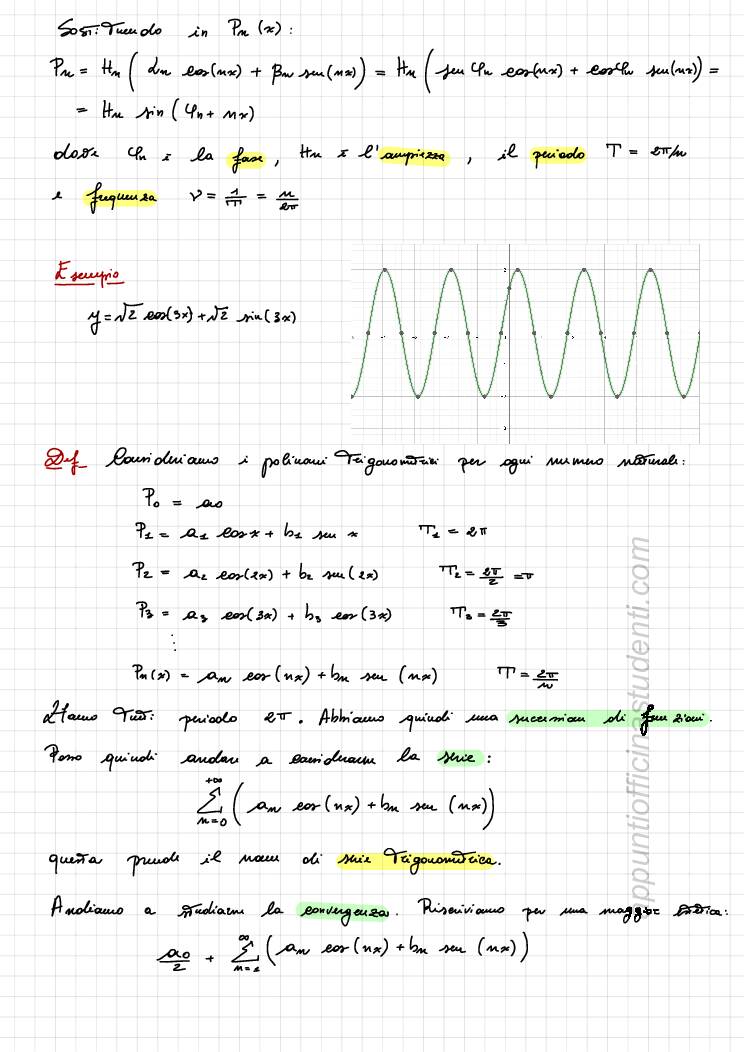 Sostituendo in Pn(x):
Pn = Hn ( αn cos(nx) + βn sen(nx) ) = Hn ( sen φn cos(nx) + cos φn sen(nx) ) =
= Hn sin ( φn + nx )
dove φn è la fase, Hn è l'ampiezza, il periodo T = 2π/n
e frequenza ν = 1/T = n/2π
Esempio
y = √2 cos(3x) + √2 sin(3x)
Def Consideriamo i polinomi Trigonometrici per ogni numero naturale:
P0 = a0
P1 = a1 cos x + b1 sen x T1 = 2π
P2 = a2 cos(2x) + b2 sen(2x) T2 = 2π/2 = π
P3 = a3 cos(3x) + b3 cos(3x) T3 = 2π/3
⋮
Pn(x) = an cos(nx) + bn sen (nx) T = 2π/n
Hanno Tutti periodo 2π. Abbiamo quindi una successioni di funzioni.
Posso quindi andare a considerare la serie:
+∞ ∑ n=0 ( an cos(nx) + bn sen (nx) )
questa prende il nome di serie Trigonometrica.
Andiamo a studiare la convergenza. Riscriviamo per una maggior
a0/2 + ∞ ∑ n=1 ( an cos(nx) + bn sen (nx) )
appuntiofficinastudenti.com